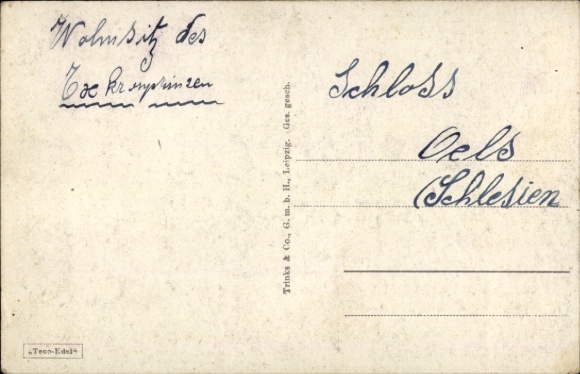 Wohnsitz des
Exkronprinzen
Schloss
Oels
(Schlesien
Trinks & Co., G. m. b. H., Leipzig. Ges. gesch.
„Teco-Edel“